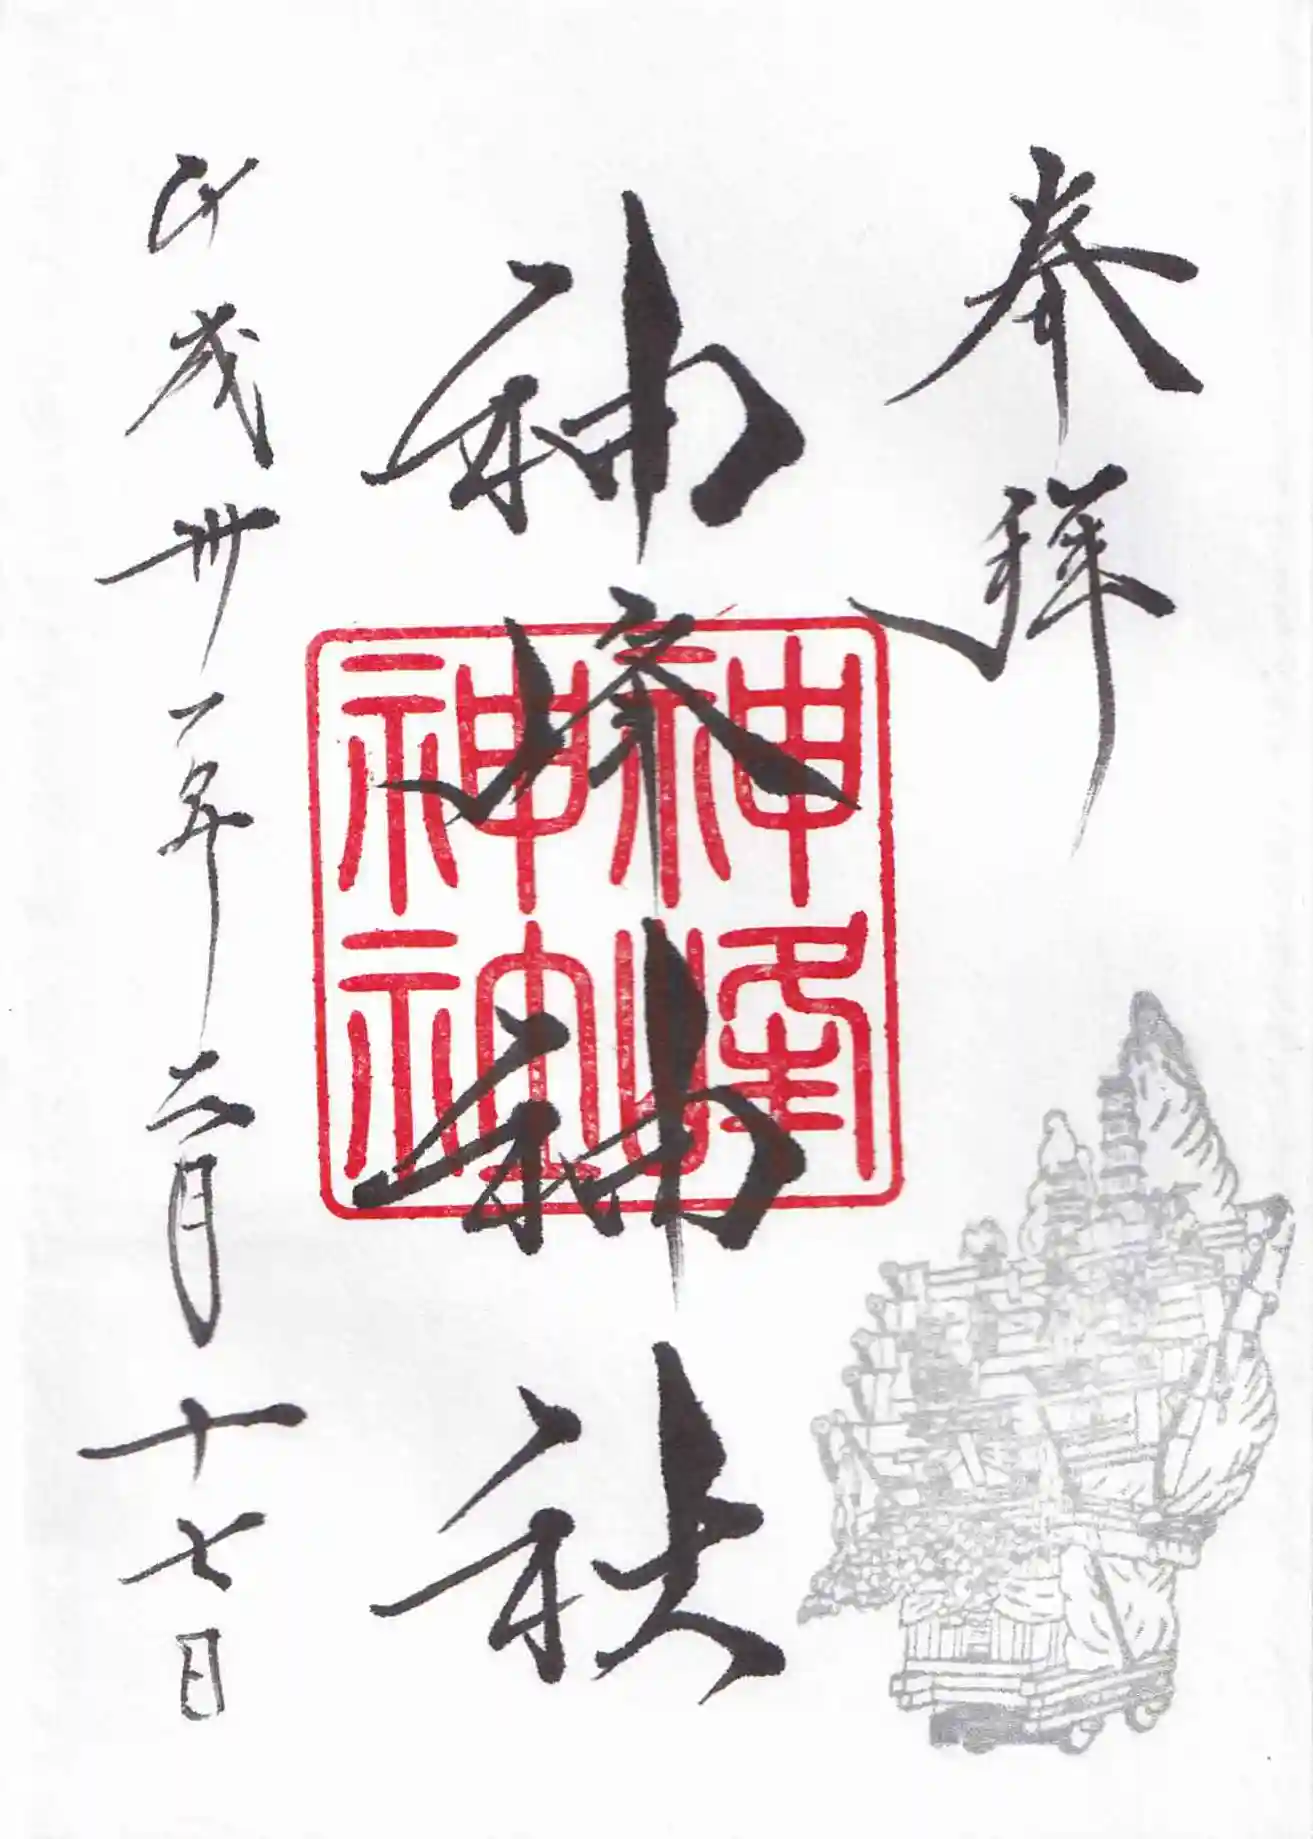 奉拝
神峰神社
平成卅一年二月十七日
神峰神社